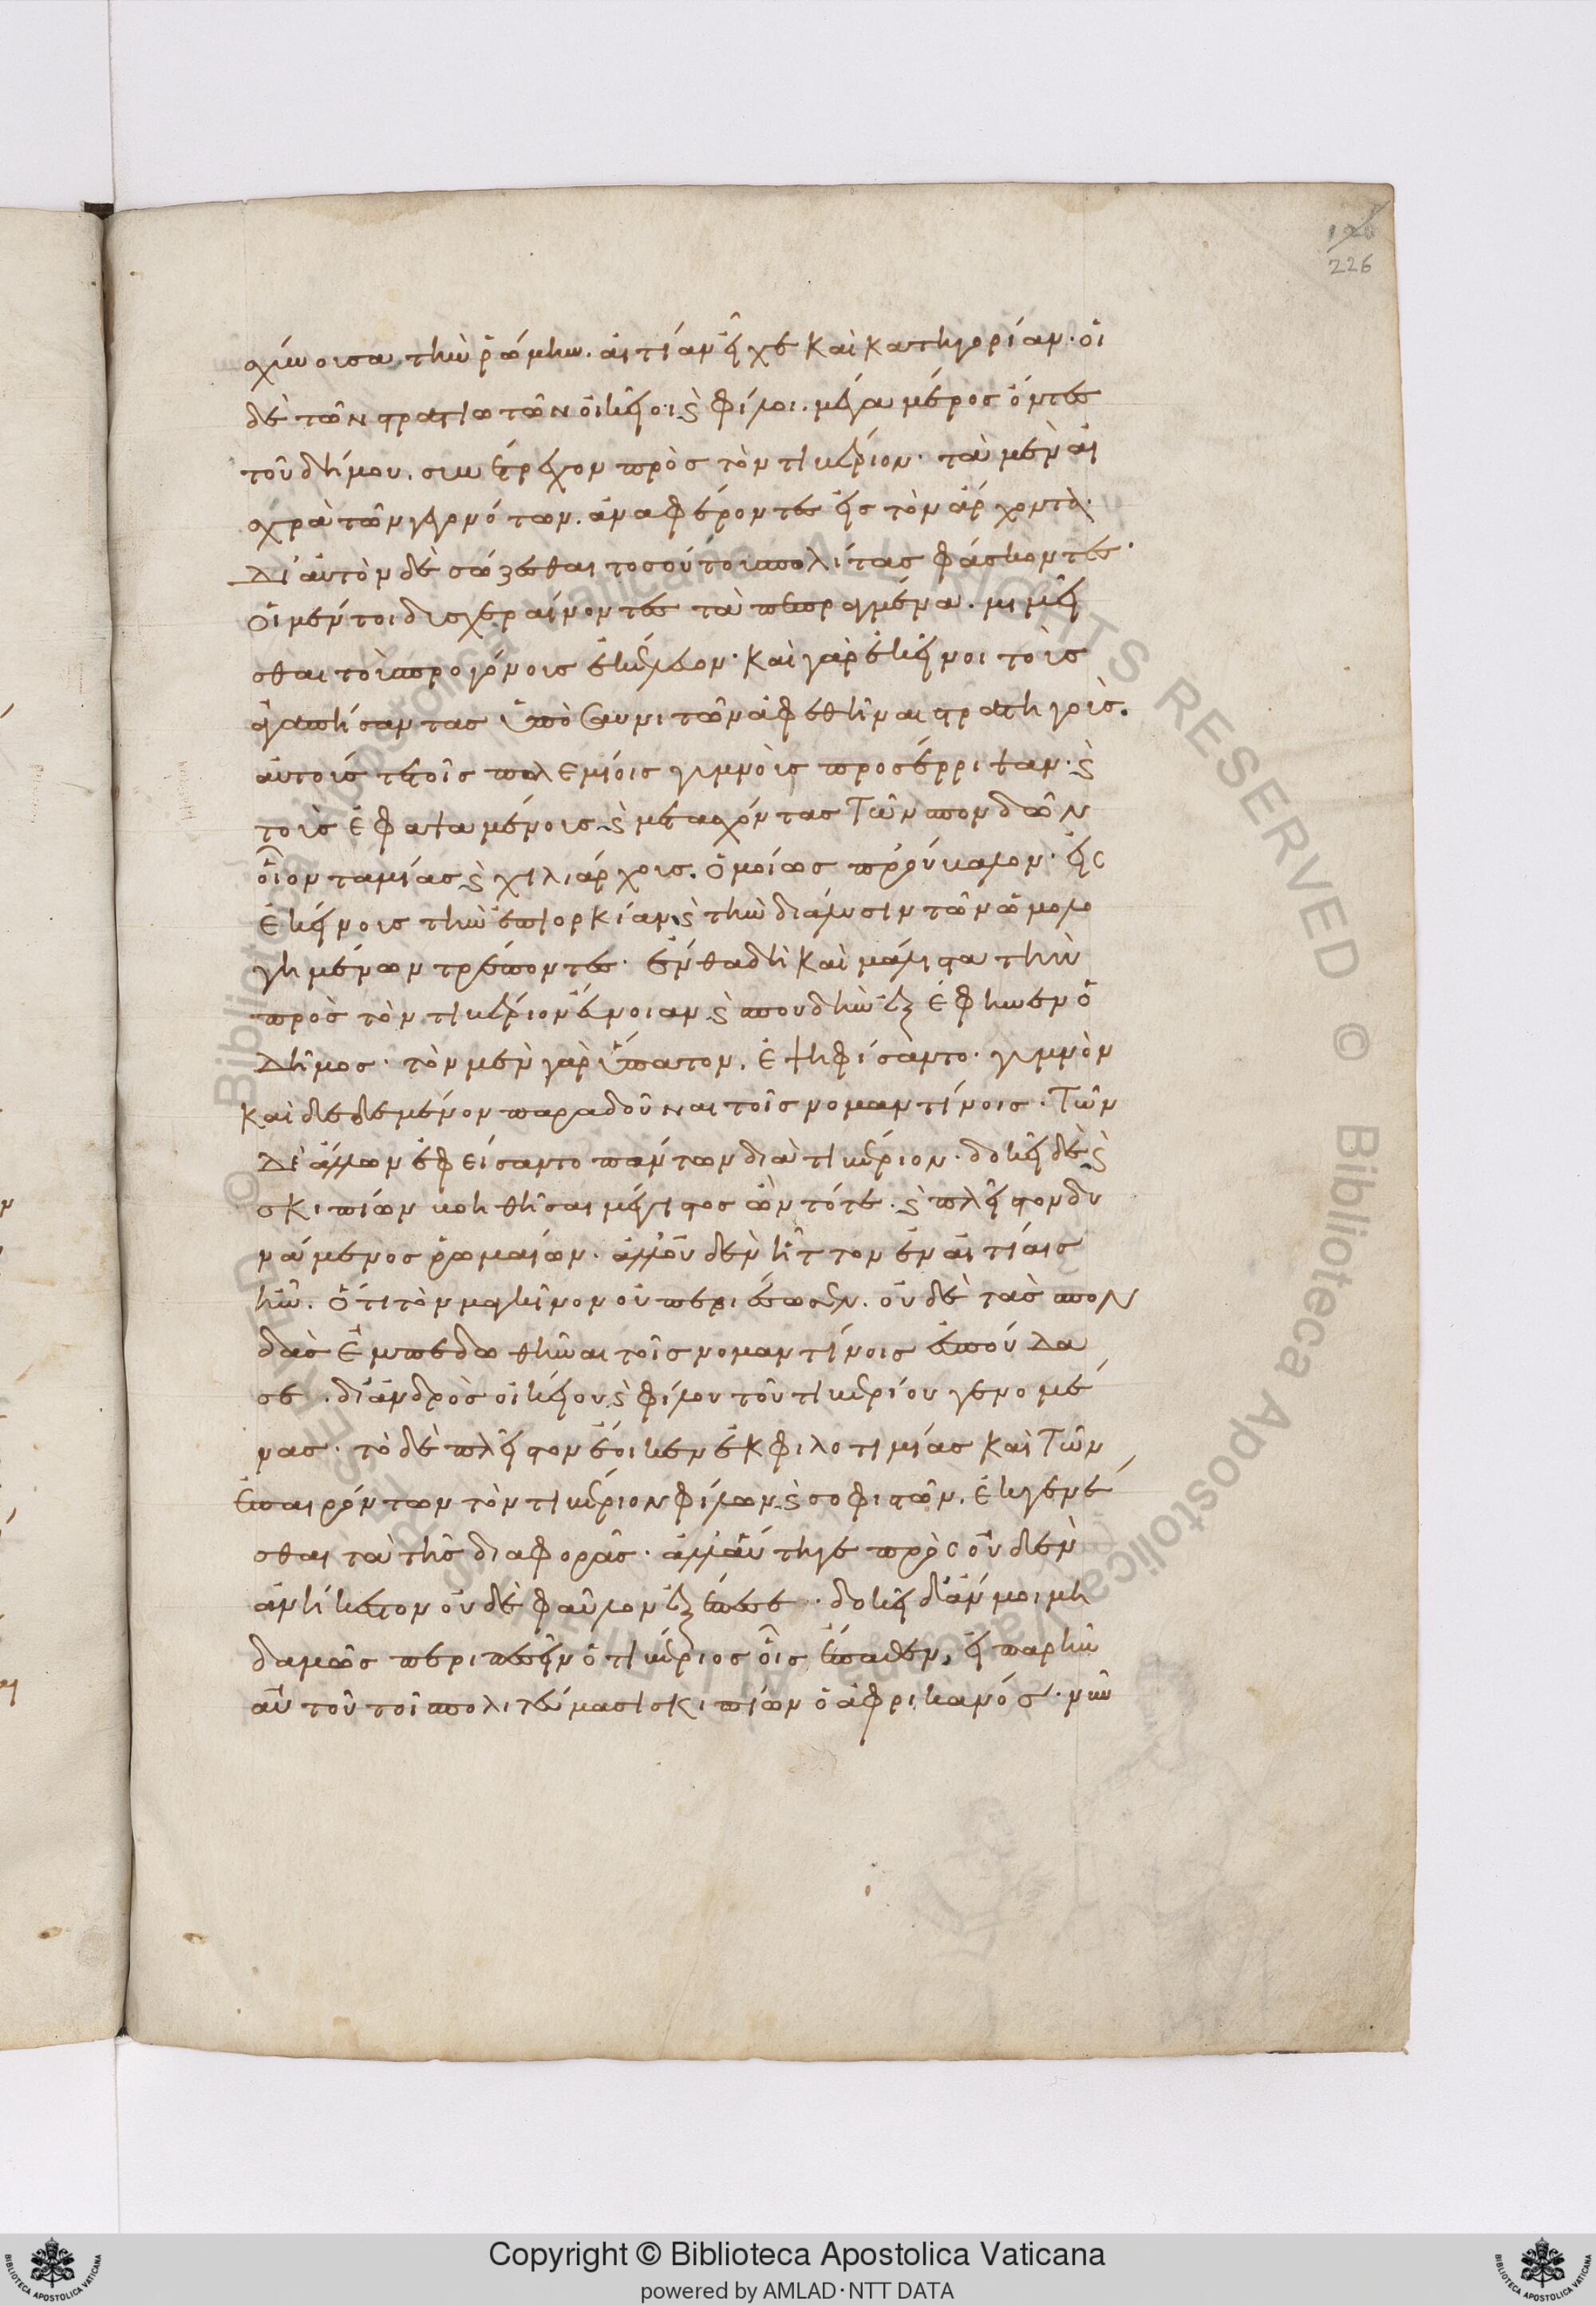 126
226
σχύνουσα τὴν ῥώμην. αἰτίαν εἶχε καὶ κατηγορίαν· οἱ
δὲ τῶν στρατιωτῶν οἰκεῖοι ϗ φίλοι. μέγα μέρος ὄντες
τοῦ δήμου. συνέτρεχον πρὸς τὸν τιβέριον· τὰ μὲν αἰ
σχρὰ τῶν γεγονότων. ἀναφέροντες εἰς τὸν ἄρχοντα·
δι' αὐτὸν δὲ σώζεσθαι τοσούτους πολίτας φάσκοντες·
οἱ μέντοι δυσχεραίνοντες τὰ πεπραγμένα. μιμεῖ
σθαι τοὺς προγόνους ἐκέλευον· καὶ γὰρ ἐκεῖνοι τοὺς
ἀγαπήσαντας ὑπὸ σαυνιτῶν ἀφεθῆναι στρατηγούς.
αὐτούς τε τοῖς πολεμίοις γυμνοὺς προσέρριψαν· ϗ
τοὺς ἐφαψαμένους ϗ μετασχόντας τῶν σπονδῶν
οἷον ταμίας ϗ χιλιάρχους. ὁμοίως προύβαλον· εἰς
ἐκείνους τὴν ἐπιορκίαν ϗ τὴν διάλυσιν τῶν ὡμολο
γημένων τρέποντες· ἔνθα δὴ καὶ μάλιστα τὴν
πρὸς τὸν τιβέριον εὔνοιαν ϗ σπουδὴν ἐξέφηνεν ὁ
δῆμος· τὸν μὲν γὰρ ὕπατον. ἐψηφίσαντο· γυμνὸν
καὶ δεδεμένον παραδοῦναι τοῖς νομαντίνοις· τῶν
δὲ ἄλλων ἐφείσαντο πάντων διὰ τιβέριον· δοκεῖ δὲ ϗ
σκιπίων βοηθῆσαι μέγιστος ὢν τότε· ϗ πλεῖστον δυ
νάμενος ῥωμαίων· ἀλλ' οὐδὲν ἧττον ἐν αἰτίαις
ἦν. ὅτι τὸν μαγκῖνον οὐ περιέσωσεν. οὐδὲ τὰς σπον
δὰς ἐμπεδωθῆναι τοῖς νομαντίνοις ἐσπούδα
σε. δι' ἀνδρὸς οἰκείου ϗ φίλου τοῦ τιβερίου γενομέ
νας· τὸ δὲ πλεῖστον ἔοικεν ἐκ φιλοτιμίας καὶ τῶν
ἐπαιρόντων τὸν τιβέριον φίλων ϗ σοφιστῶν. ἐκγενέ
σθαι τὰ τῆς διαφορᾶς· ἀλλ' αὕτη γε πρὸς οὐδὲν
ἀνήκεστον οὐδὲ φαῦλον ἐξέπεσε· δοκεῖ δ' ἄν μοι μη
δαμῶς περιπεσεῖν ὁ τιβέριος οἷς ἔπαθεν, εἰ παρῆν
αὐτοῦ τοῖς πολιτεύμασι σκιπίων ὁ ἀφρικανός· νῦν
Copyright © Biblioteca Apostolica Vaticana
powered by AMLAD·NTT DATA